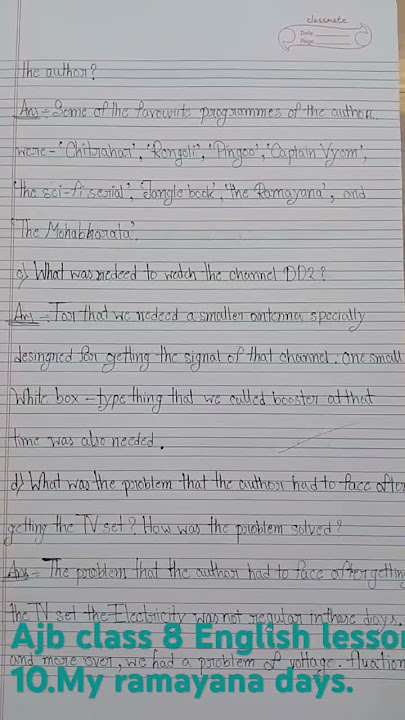 classmate
Date
Page
the author?
Ans:- Some of the favourite programmes of the author
were - 'Chitrahar', 'Rongoli', 'Pingoo', 'Captain Vyom',
'the sci-fi serial', Jangle book', 'the Ramayana', and
'The Mohabharata'.
c) What was nedeed to watch the channel DD2?
Ans:- For that we nedeed a smaller antenna specially
desingned for getting the signal of that channel. One small
White box - type thing that we called booster at that
time was also needed.
d) What was the problem that the author had to face after
getting the TV set? How was the problem solved?
Ans:- The problem that the author had to face after getting
the TV set the Electricity was not regular in those days.
Ajb class 8 English lesson
and more over, we had a problem of voltage. fluation
10.My ramayana days.